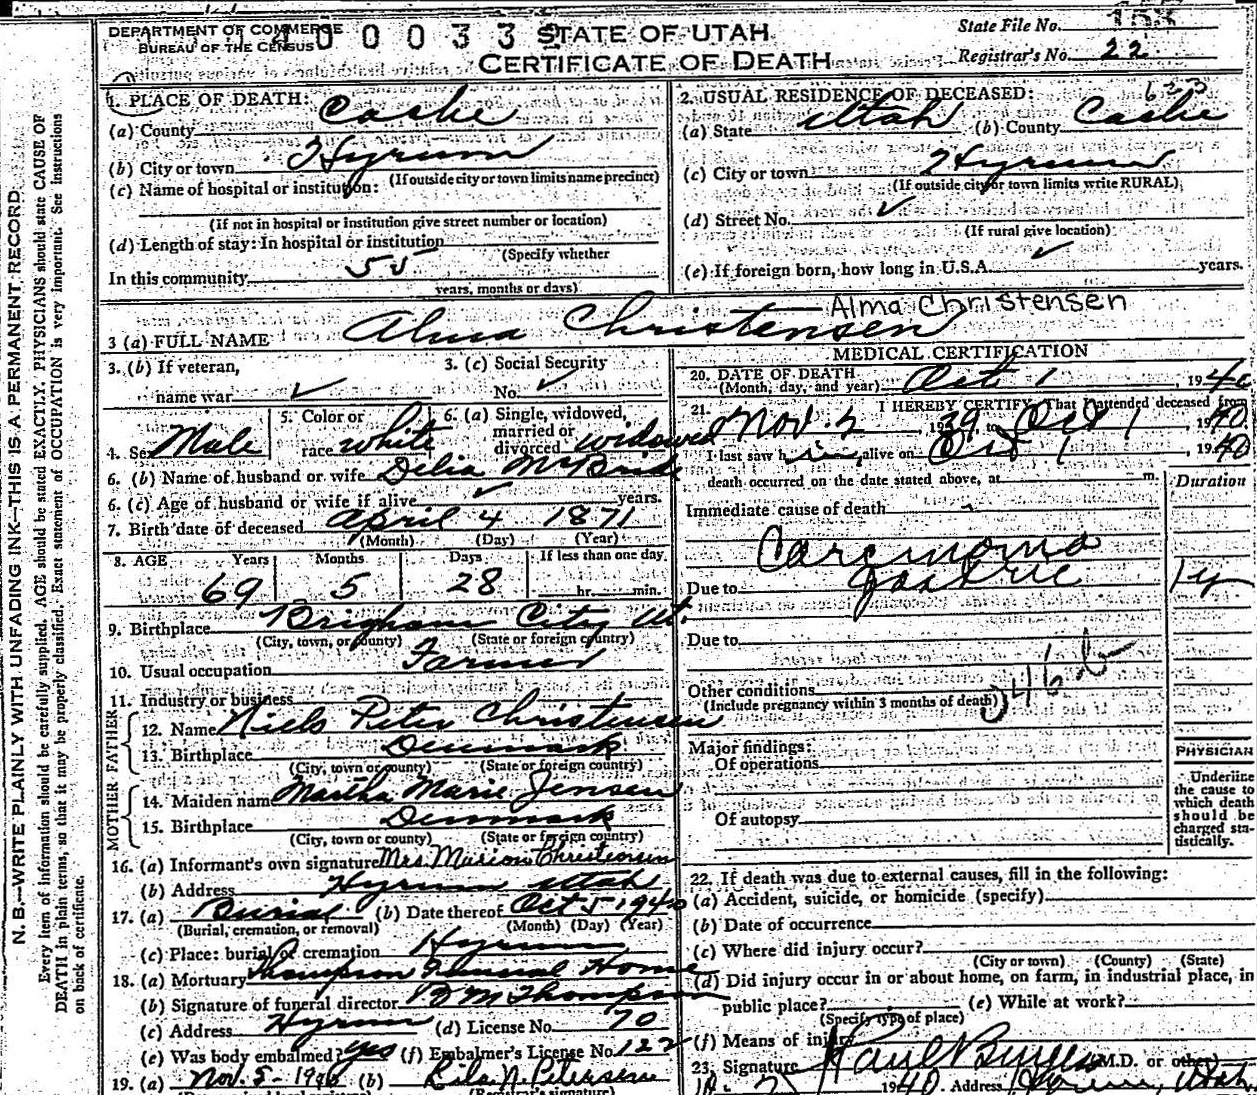 DEPARTMENT OF COMMERCE
BUREAU OF THE CENSUS
400033
STATE OF UTAH
CERTIFICATE OF DEATH
State File No.
Registrar's No. 22
N. B.—WRITE PLAINLY WITH UNFADING INK—THIS IS A PERMANENT RECORD.
Every item of information should be carefully supplied. AGE should be stated EXACTLY. PHYSICIANS should state CAUSE OF
DEATH in plain terms, so that it may be properly classified. Exact statement of OCCUPATION is very important. See instructions
on back of certificate.
1. PLACE OF DEATH:
(a) County Cache
(b) City or town Hyrum
(If outside city or town limits name precinct)
(c) Name of hospital or institution:
(If not in hospital or institution give street number or location)
(d) Length of stay: In hospital or institution
(Specify whether
In this community 55
years, months or days)
2. USUAL RESIDENCE OF DECEASED:
(a) State Utah (b) County Cache
(c) City or town Hyrum
(If outside city or town limits write RURAL)
(d) Street No. ✓
(If rural give location)
(e) If foreign born, how long in U.S.A. ✓ years.
3 (a) FULL NAME Alma Christensen
Alma Christensen
3. (b) If veteran,
name war ✓
3. (c) Social Security
No. ✓
4. Sex Male
5. Color or
race white
6. (a) Single, widowed,
married or
divorced widowed
6. (b) Name of husband or wife Delia McBride
6. (c) Age of husband or wife if alive ✓ years.
7. Birth date of deceased April 4 1871
(Month) (Day) (Year)
8. AGE Years Months Days If less than one day
69 5 28 hr. min.
9. Birthplace Brigham City Ut.
(City, town, or county) (State or foreign country)
10. Usual occupation Farmer
11. Industry or business
FATHER
12. Name Niels Peter Christensen
13. Birthplace Denmark
(City, town or county) (State or foreign country)
MOTHER
14. Maiden name Martha Marie Jensen
15. Birthplace Denmark
(City, town or county) (State or foreign country)
16. (a) Informant's own signature Mrs. Marion Christensen
(b) Address Hyrum Utah
17. (a) Burial (b) Date thereof Oct 5 1940
(Burial, cremation, or removal) (Month) (Day) (Year)
(c) Place: burial or cremation Hyrum
18. (a) Mortuary Thompson Funeral Home
(b) Signature of funeral director B M Thompson
(c) Address Hyrum (d) License No. 70
(e) Was body embalmed? Yes (f) Embalmer's License No. 122
19. (a) Nov. 5-1940 (b) Lila N. Petersen
MEDICAL CERTIFICATION
20. DATE OF DEATH
(Month, day, and year) Oct 1, 1940
21. I HEREBY CERTIFY, That I attended deceased from
Nov. 2, 1939 to Oct 1, 1940
I last saw him alive on Oct 1, 1940
death occurred on the date stated above, at m.
Duration
Immediate cause of death
Carcinoma
Due to gastric 1y
Due to
Other conditions
(Include pregnancy within 3 months of death)
46b
Major findings:
Of operations
Of autopsy
PHYSICIAN
Underline
the cause to
which death
should be
charged sta-
tistically.
22. If death was due to external causes, fill in the following:
(a) Accident, suicide, or homicide (specify)
(b) Date of occurrence
(c) Where did injury occur?
(City or town) (County) (State)
(d) Did injury occur in or about home, on farm, in industrial place, in
public place? (e) While at work?
(Specify type of place)
(f) Means of injury
23. Signature Paul Burgess M.D. or other
1940. Address Hyrum, Utah